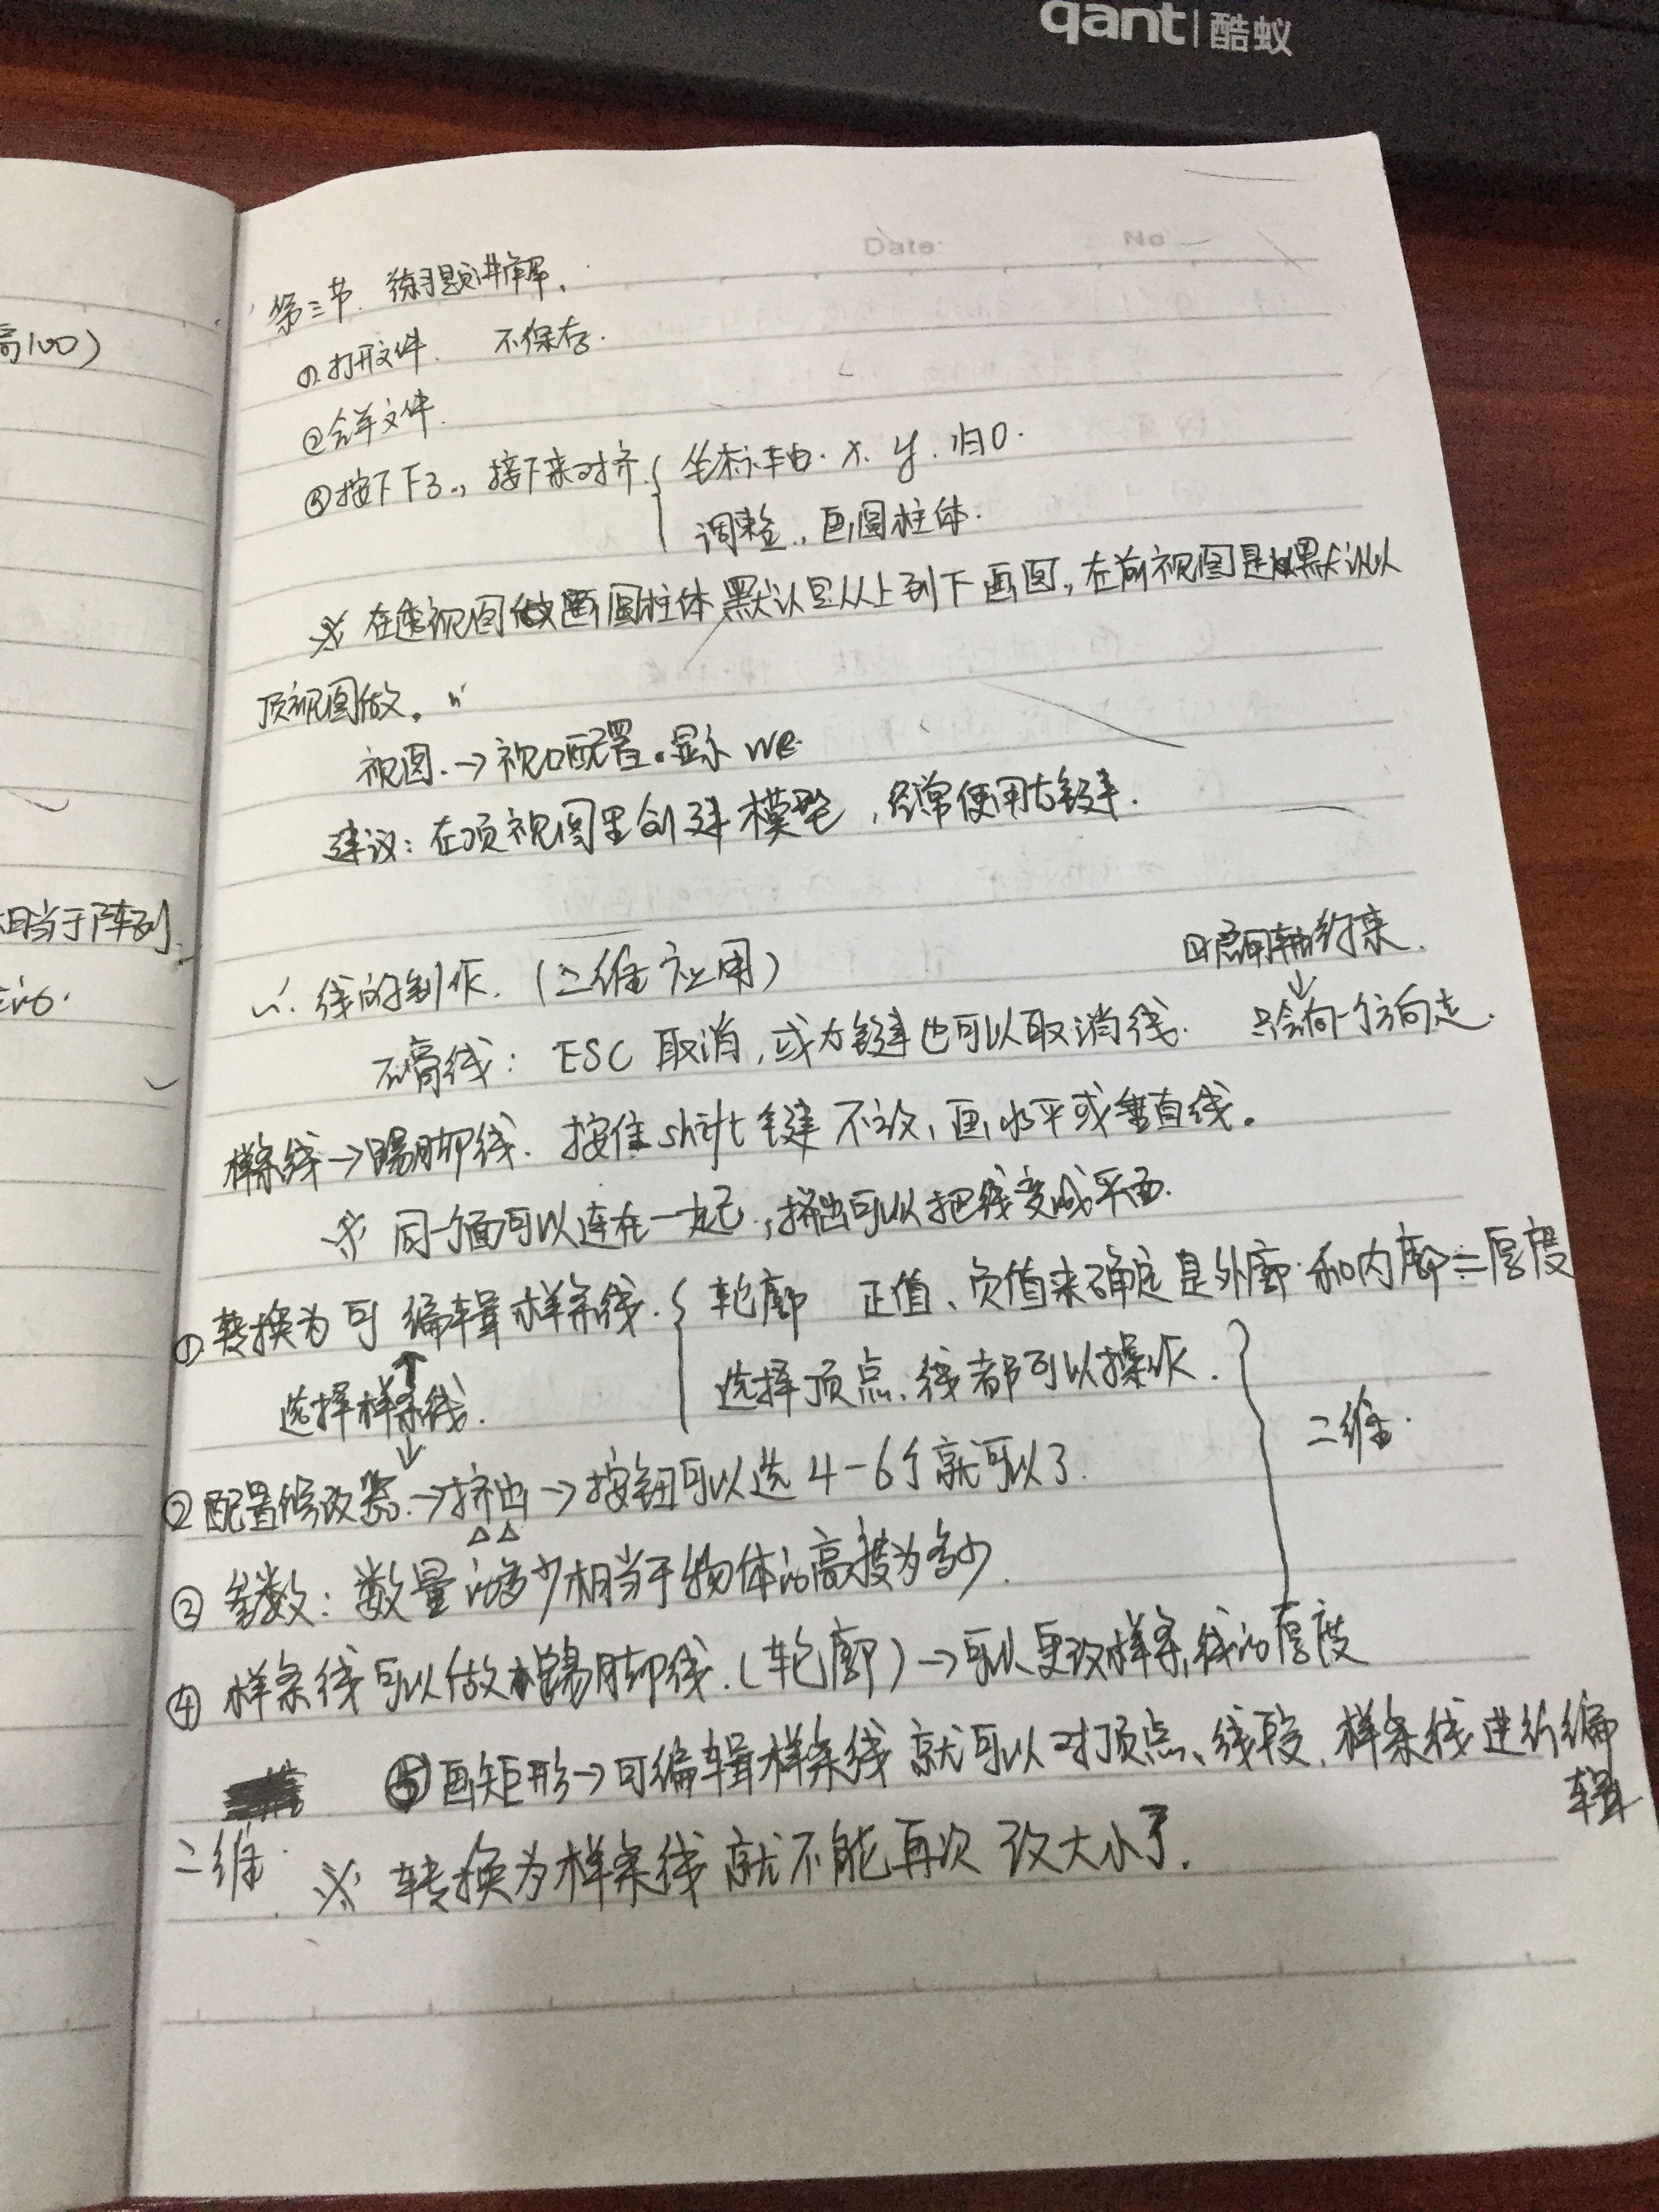 qant | 酷蚁
Date: No
第三节. 练习题讲解.
①.打开文件. 不保存.
②合并文件.
③按下F3., 接下来对齐{ 坐标轴. x. y. 归0.
调整., 画圆柱体.
※ 在透视图做画圆柱体默认是从上到下画图, 在前视图是默认从
顶视图做.
视图.→视口配置.显示
建议: 在顶视图里创建模型, 经常使用右键.
线的制作. (二维应用)
启用轴约束.
↓
只会向一个方向走.
ESC 取消, 或右键也可以取消线.
样条线→踢脚线. 按住shift键不放, 画水平或垂直线。
※ 同一个面可以连在一起, 挤出可以把线变成平面.
①转换为可编辑样条线.{ 轮廓 正值、负值来确定是外廓和内廓=厚度
↑
选择样条线.
↓
选择顶点、线都可以操作.
二维.
②配置修改器.→挤出→按钮可以选4-6个就可以了.
△△
③ 参数: 数量的多少相当于物体的高度为多少.
④ 样条线可以做踢脚线.(轮廓)→可以更改样条线的厚度
⑤画矩形→可编辑样条线就可以对顶点、线段, 样条线进行编
辑
二维.
※ 转换为样条线就不能再次改大小了.
高100)
相当于阵列.